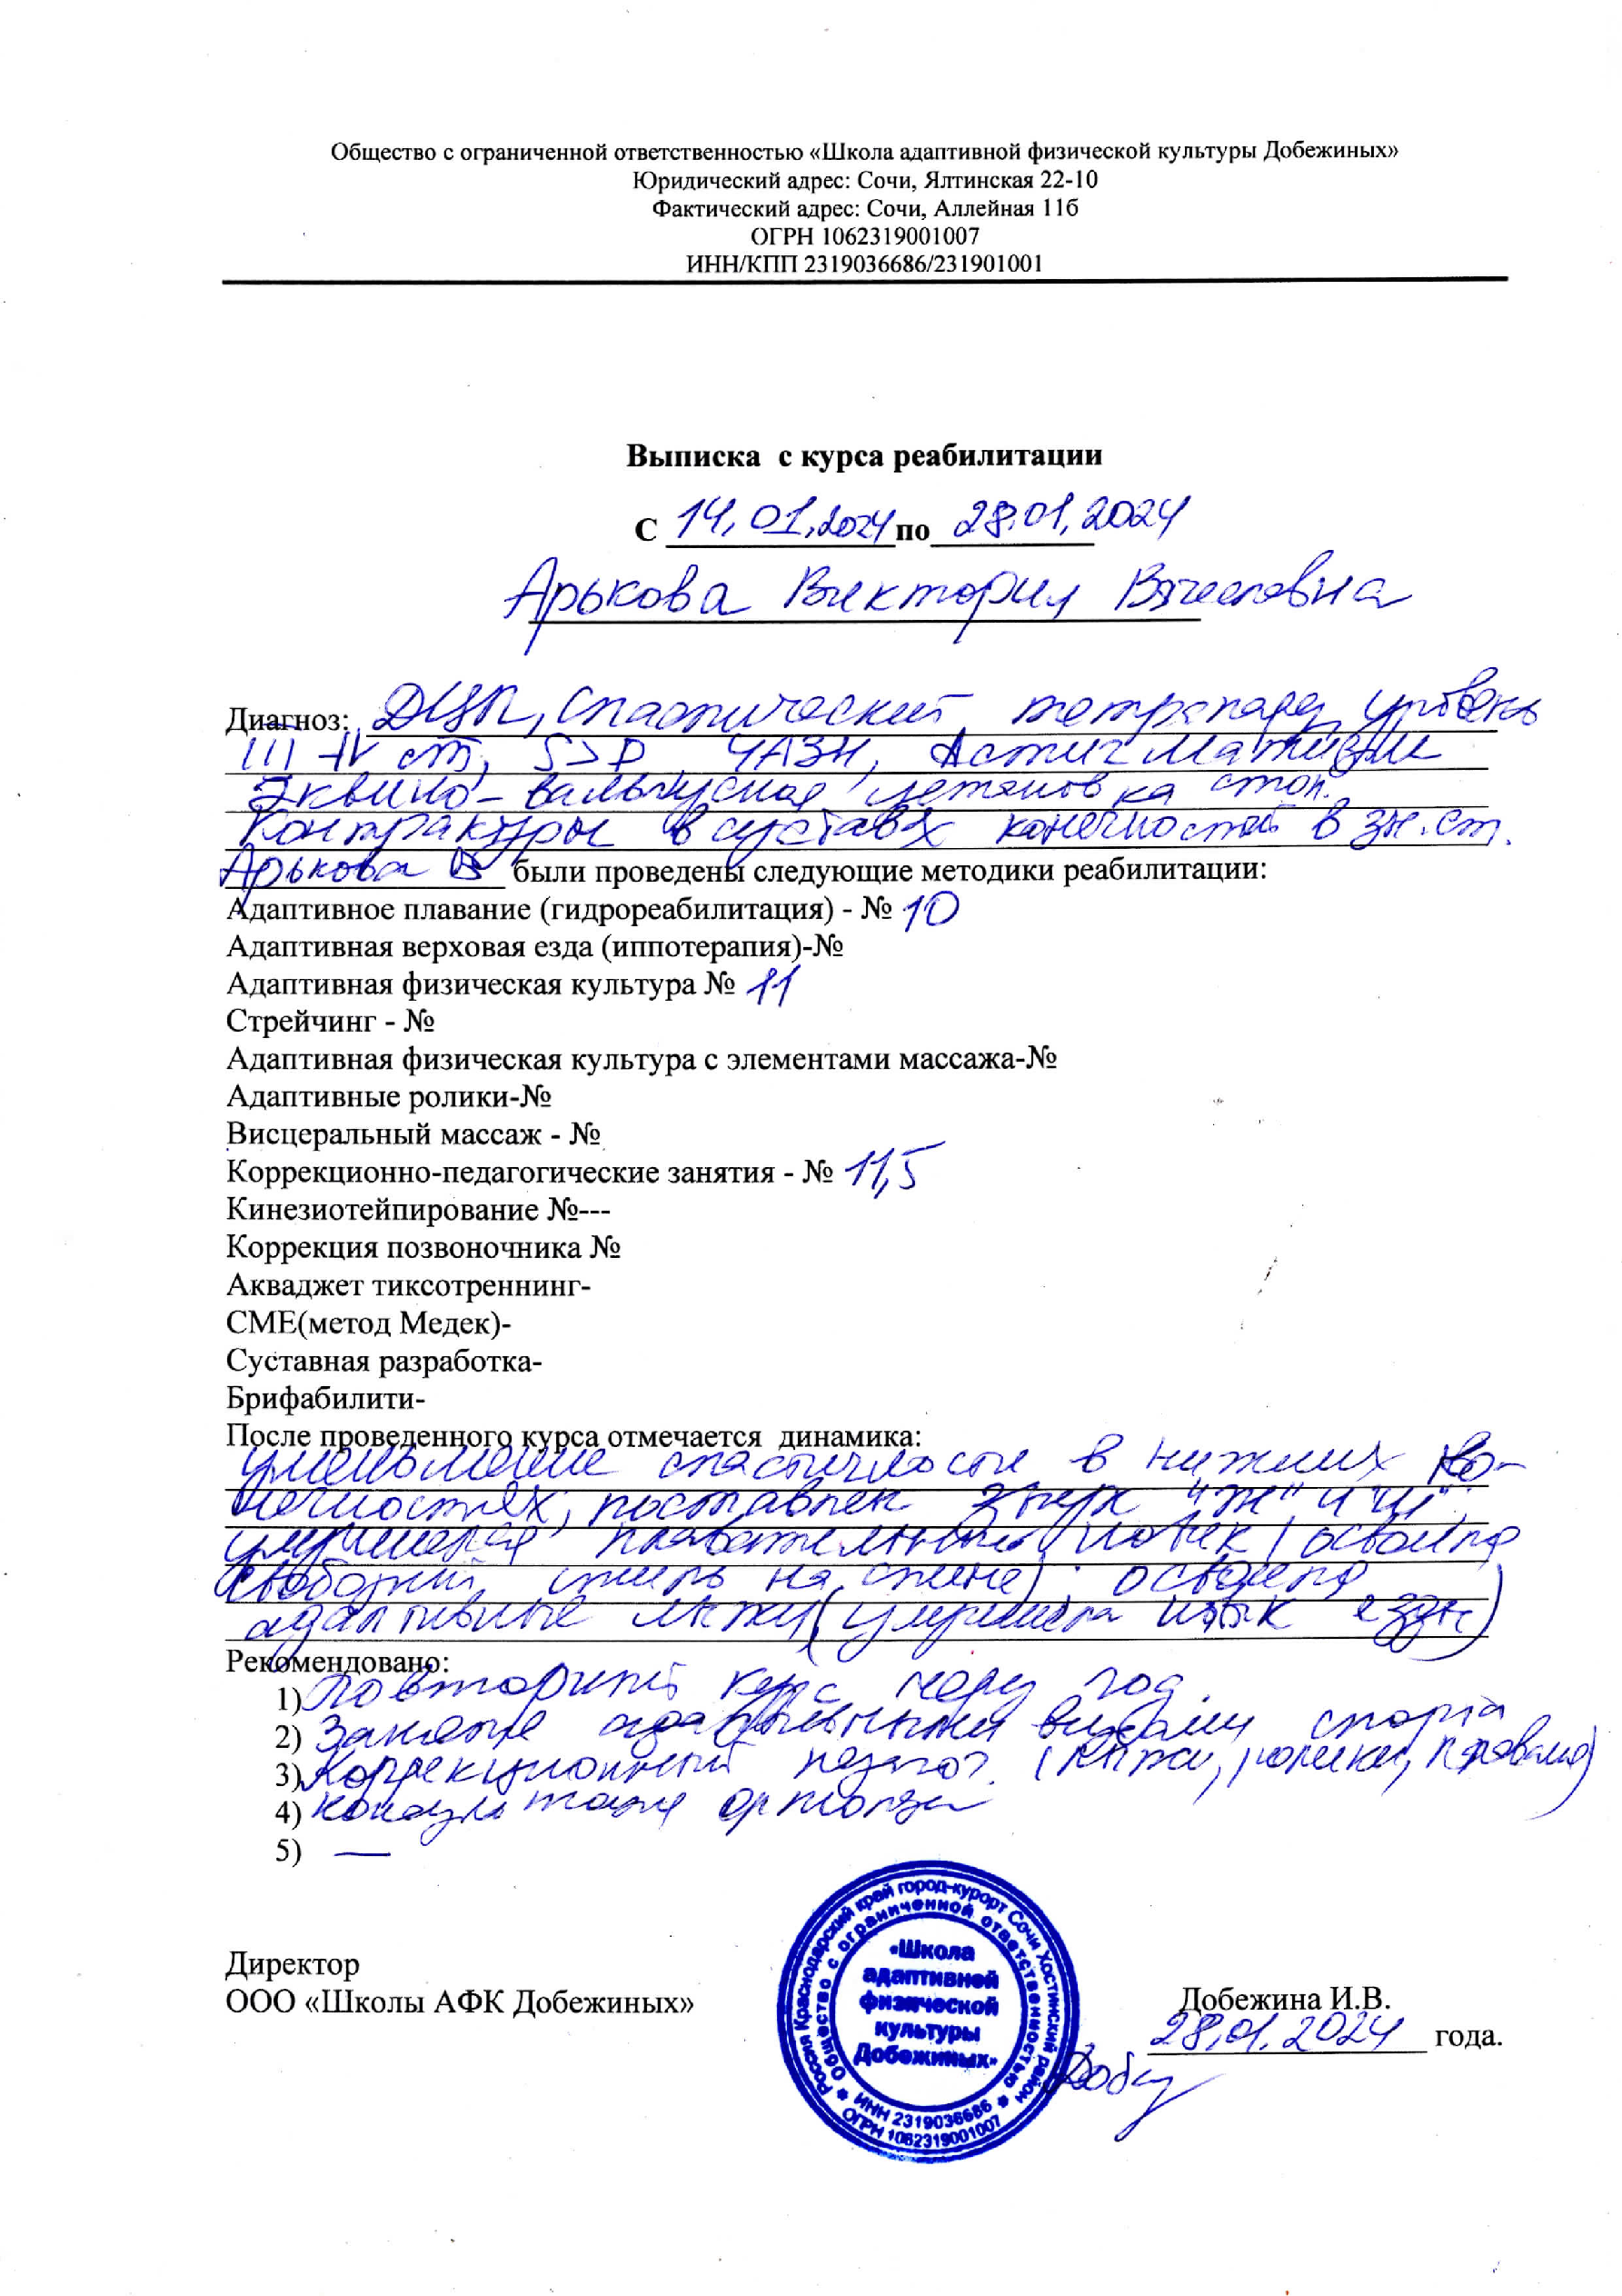 Общество с ограниченной ответственностью «Школа адаптивной физической культуры Добежиных»
Юридический адрес: Сочи, Ялтинская 22-10
Фактический адрес: Сочи, Аллейная 11б
ОГРН 1062319001007
ИНН/КПП 2319036686/231901001
Выписка с курса реабилитации
С 14.01.2024 по 28.01.2024
Арькова Виктория Вячеславовна
Диагноз: ДЦП, Спастический тетрапарез, уровень
III-IV ст, S>D, ЧАЗН, Астигматизм
Эквино-вальгусная установка стоп.
Контрактуры в суставах конечностей в зн.ст.
Арькова В были проведены следующие методики реабилитации:
Адаптивное плавание (гидрореабилитация) - № 10
Адаптивная верховая езда (иппотерапия)-№
Адаптивная физическая культура № 11
Стрейчинг - №
Адаптивная физическая культура с элементами массажа-№
Адаптивные ролики-№
Висцеральный массаж - №
Коррекционно-педагогические занятия - № 11,5
Кинезиотейпирование №---
Коррекция позвоночника №
Акваджет тиксотреннинг-
СМЕ(метод Медек)-
Суставная разработка-
Брифабилити-
После проведенного курса отмечается динамика:
уменьшение спастичности в нижних ко-
нечностях, поставлен звук "ж" и "ш",
улучшился плавательный навык (освоила
свободный стиль на спине); освоила
адаптивные лыжи (улучшила навык езды)
Рекомендовано:
1) Повторить курс через год.
2) Занятие адаптивными видами спорта
3) Коррекционный педагог. (лыжи, ролики, плавание)
4) консультация ортопеда
5) —
Директор
ООО «Школы АФК Добежиных»
Добежина И.В.
28.01.2024 года.
Россия Краснодарский край город-курорт Сочи Хостинский район
Общество с ограниченной ответственностью
«Школа
адаптивной
физической
культуры
Добежиных»
ИНН 2319036686
ОГРН 1062319001007